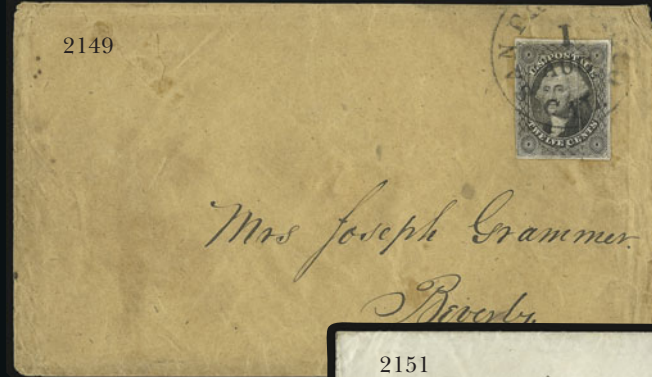 2149
U.S. POSTAGE
TWELVE CENTS
Mrs Joseph Grammer.
Beverly.
2151